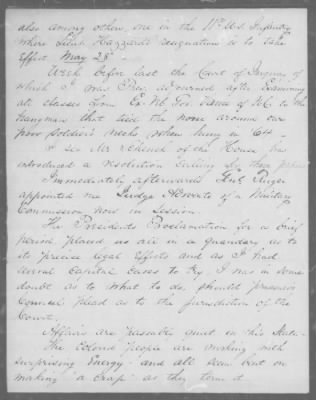 also among others, one in the 11th U.S. Infantry
where Lieut Hazzard's resignation is to take
Effect May 28
Week before last the Court of Inquiry of
which I was Pres, adjourned after Examining
all classes from Ex. Gov. Vance of N.C. to the
hangman that tied the noose around our
poor soldier's necks when hung in 64.
I see Mr Schenck of the House has
introduced a resolution calling for these
Immediately afterwards Genl Ruger
appointed me Judge Advocate of a Military
Commission now in Session.
The Presidents Proclamation for a brief
period placed us all in a quandary, as to
its precise legal Effects and as I had
several Capital Cases to try I was in some
doubt as to what to do, should prisoner's
Counsel plead as to the jurisdiction of the
Court.
Affairs are passably quiet in this State.
The Colored people are working with
surprising Energy and all seem bent on
making "a crap" as they term it